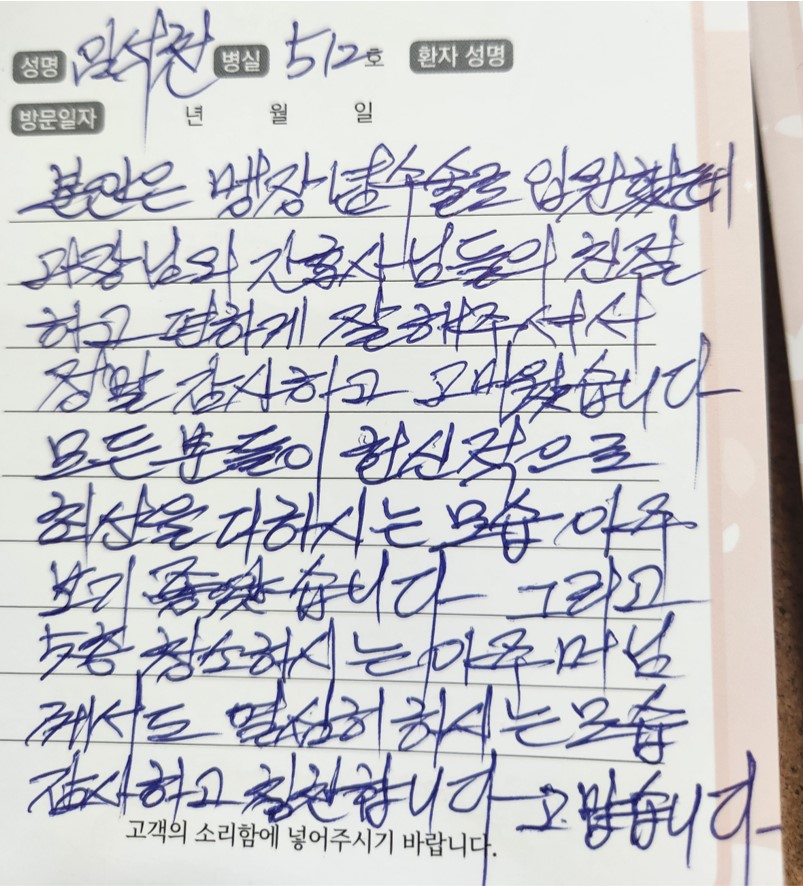 성명 임석천 병실 512호 환자 성명
방문일자 년 월 일
본인은 맹장 수술로 입원했는데
과장님와 간호사님들의 친절
하고 편하게 잘해주셔서
정말 감사하고 고마웠습니다
모든분들이 헌신적으로
최선을 다하시는 모습 아주
보기 좋았습니다 그리고
5층 청소하시는 아주머님
께서도 열심히 하시는 모습
감사하고 칭찬합니다 고맙습니다
고객의 소리함에 넣어주시기 바랍니다.